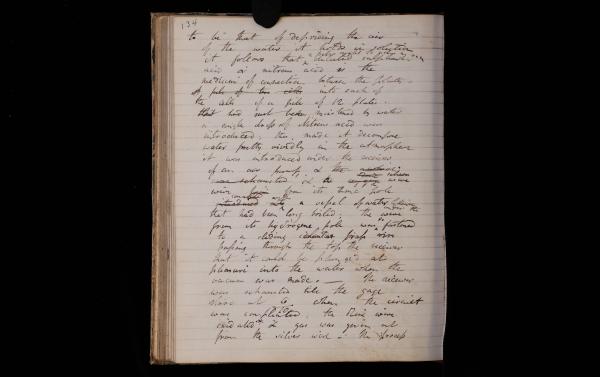 134
to be that of depriving the air
of the water it holds in solution
it follows that diluted
acid or nitrous acid is the
medium of connection between the plates.
into each of
the cells of a pile of 12 plates.
that had just been moistened by water
a single drop of Nitrous acid was
introduced; this made it decompose
water pretty vividly in the atmosphere
it was introduced under the receiver
of an air pump, & the
was exhausted, & the
wire from its zinc pole
connected with a vessel of water
that had been long boiled; the wire
from its hydrogene pole was fastened
to a sliding
passing through the top the receiver
that it could be plunged at
pleasure into the water when the
vacuum was made. — The receiver
was exhausted till the gage
stood at when the circuit
was completed, the zinc wire
oxidated & gas was given out
from the silver wire — The process